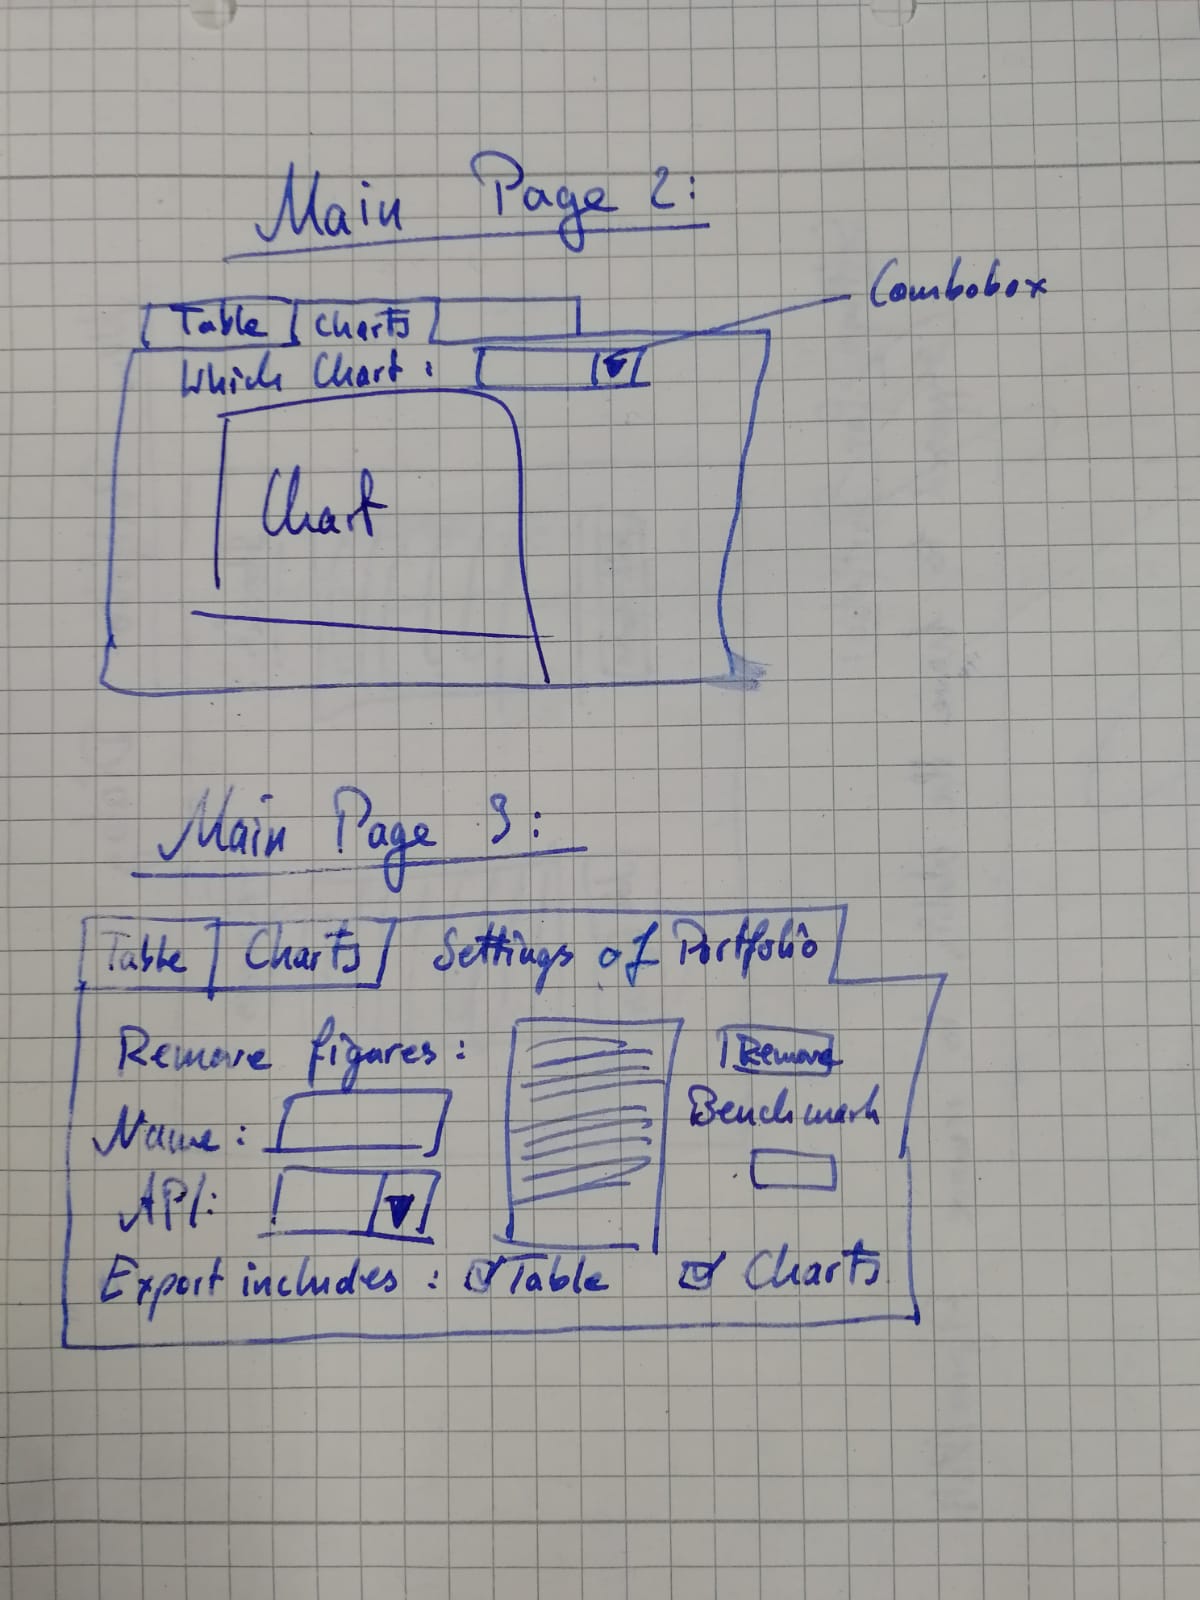 Main Page 2:
Combobox
Table Charts
Which Chart:
Chart
Main Page 3:
Table Charts Settings of Portfolio
Remove figures: Remove
Name: Benchmark
API:
Export includes: Table Charts